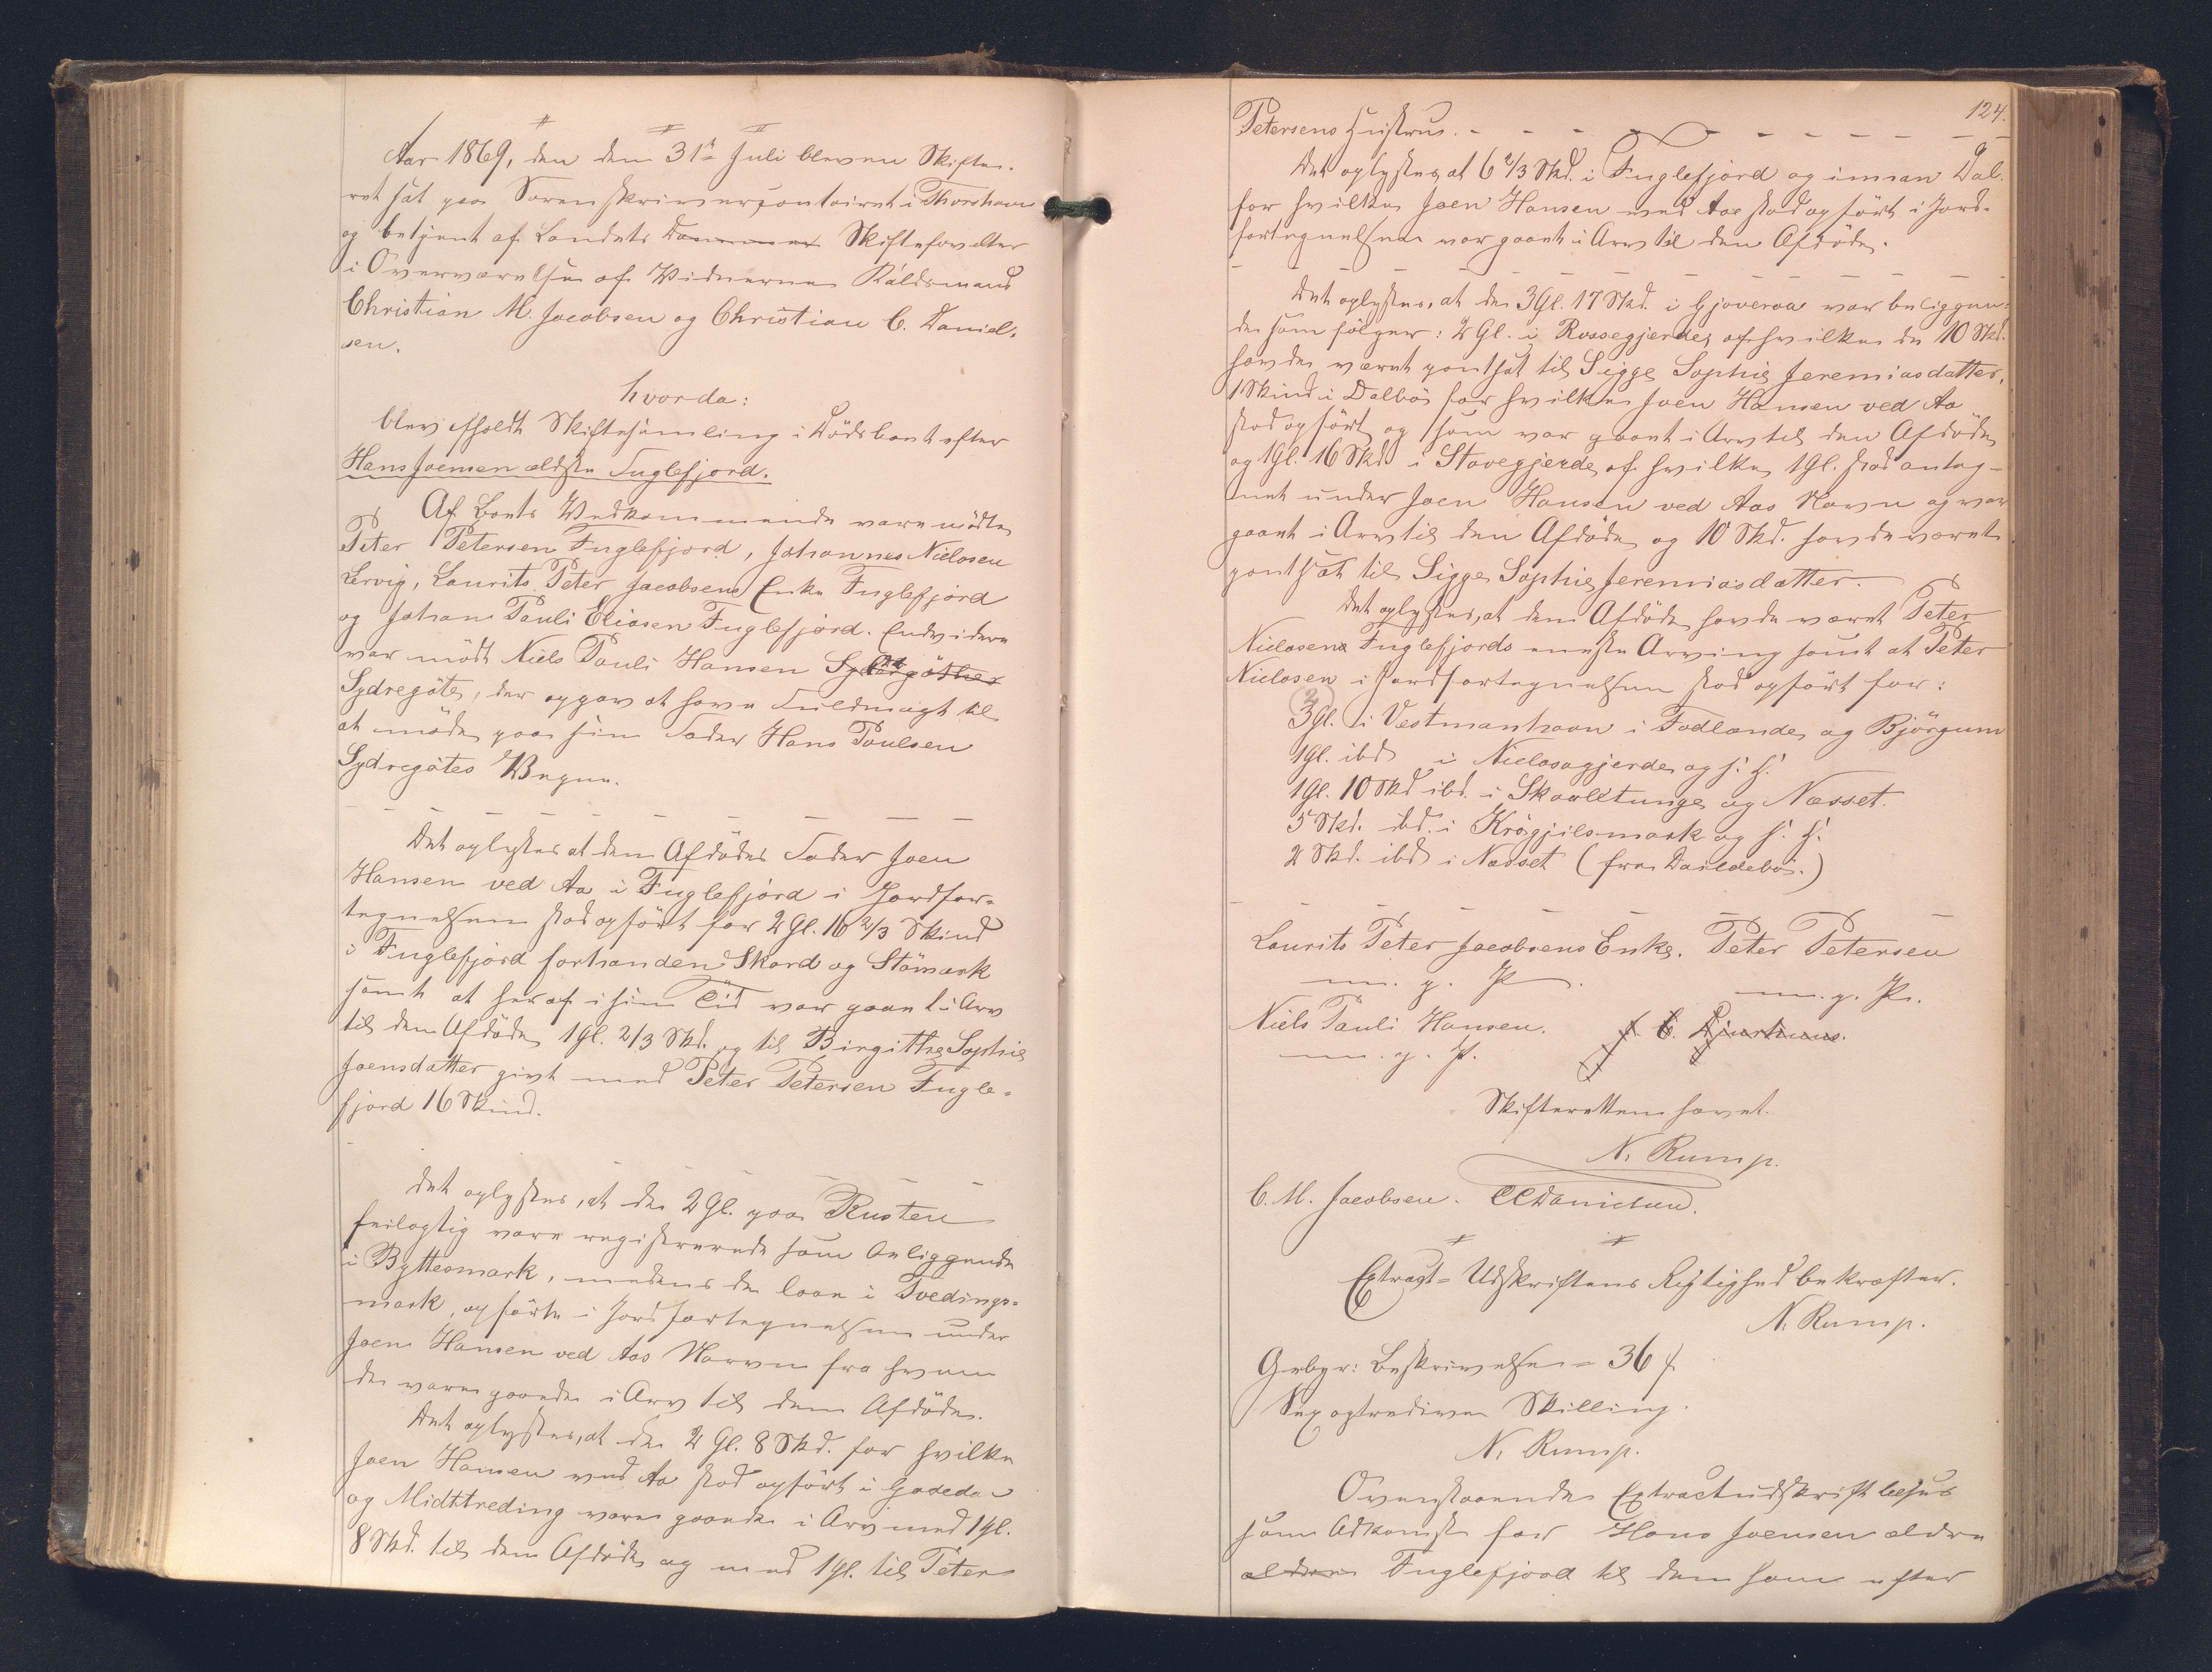 Aar 1869, den den 31te Juli blev en Skifte-
ret sat paa Sorenskrivercontoiret i Thorshavn
og betjent af Landets Dommer Skifteforvalter
i Overværelse af Vidnerne Rådsmand
Christian M. Jacobsen og Christian C. Daniel-
sen.
hvorda:
blev afholdt Skiftesamling i Dödsboet efter
Hans Joensen ældste Fuglefjord.
Af Boets Vedkommende vare mödte
Peter Petersen Fuglefjord, Johannes Nielsen
Lervig, Laurits Peter Jacobsens Enke Fuglefjord
og Johan Pauli Eliasen Fuglefjord. Endvidere
var mödt Niels Pauli Hansen
Sydregöte, der opgav at have Fuldmagt til
at möde paa sin Fader Hans Poulsen
Sydregötes Vegne.
Det oplystes at den Afdödes Fader Joen
Hansen ved Aa i Fuglefjord i Jordfor-
tegnelsen stod opfört for 2 Gl. 16 2/3 Skind
i Fuglefjord forhanden Skard og Stömark
samt at heraf i sin Tid var gaaet i Arv
til den Afdöde 1 Gl. 2/3 Skd. og til Birgitthe Sophie
Joensdatter givt med Peter Petersen Fugle-
fjord 16 Skind.
Det oplystes, at de 2 Gl. paa Rusten
feilagtig vare registrerede som beliggende
i Byttesmark, medens de laae i Tvedings-
mark, opförte i Jordfortegnelsen under
Joen Hansen ved Aas Navn fra hvem
de vare gaaede i Arv til den Afdöde.
Det oplystes, at de 2 Gl. 8 Skd. for hvilke
Joen Hansen ved Aa stod opfört i Gadeda
og Midttreding vare gaaede i Arv med 1 Gl.
8 Skd. til den Afdöde og med 1 Gl. til Peter
124.
Petersens Hustru.
Det oplystes, at 6 2/3 Skd. i Fuglefjord og innan Dal
for hvilke Joen Hansen ved Aae stod opfört i Jord-
fortegnelsen var gaaet i Arv til den Afdöde.
Det oplystes, at de 3 Gl. 17 Skd. i Gjoveraa var beliggen-
de som fölger: 2 Gl. i Rossegjerde, af hvilke de 10 Skd.
havde været pantsat til Sigge Sophie Jeremiasdatter,
1 Skind i Dalbö for hvilke Joen Hansen ved Aa
stod opfört og som var gaaet i Arv til den Afdöde
og 1 Gl. 16 Skd. i Stovegjerde, af hvilke 1 Gl. stod anteg-
net under Joen Hansen ved Aas Navn og var
gaaet i Arv til den Afdöde og 10 Skd. havde været
pantsat til Sigge Sophie Jeremiasdatter.
Det oplystes, at den Afdöde havde været Peter
Nielsens Fuglefjords eneste Arving samt at Peter
Nielsen i Jordfortegnelsen stod opfört for:
2
3 Gl. i Vestmanhavn i Fodlande og Björgum
1 Gl. ibd i Nielsagjerde og s. H.
1 Gl. 10 Skd ibd. i Skaaltunge og Nesset.
5 Skd. ibd. i Krögjilsmark og s. H.
2 Skd. ibd i Nesset (fra Daildebö.)
Laurits Peter Jacobsens Enke. Peter Petersen
m. p. P. m. p. P.
Niels Pauli Hansen. J C Djurhuus.
m. p. P.
Skifteretten hævet.
N. Rump.
C. M. Jacobsen. CCDanielsen.
Extract-Udskriftens Rigtighed bekræfter.
N. Rump.
Gebyr: Beskrivelsen = 36 ſ
Sex og tredive Skilling.
N. Rump.
Ovenstaaende Extractudskrift læses
som Adkomst for Hans Joensen ældre
ældre Fuglefjord til dem som efter